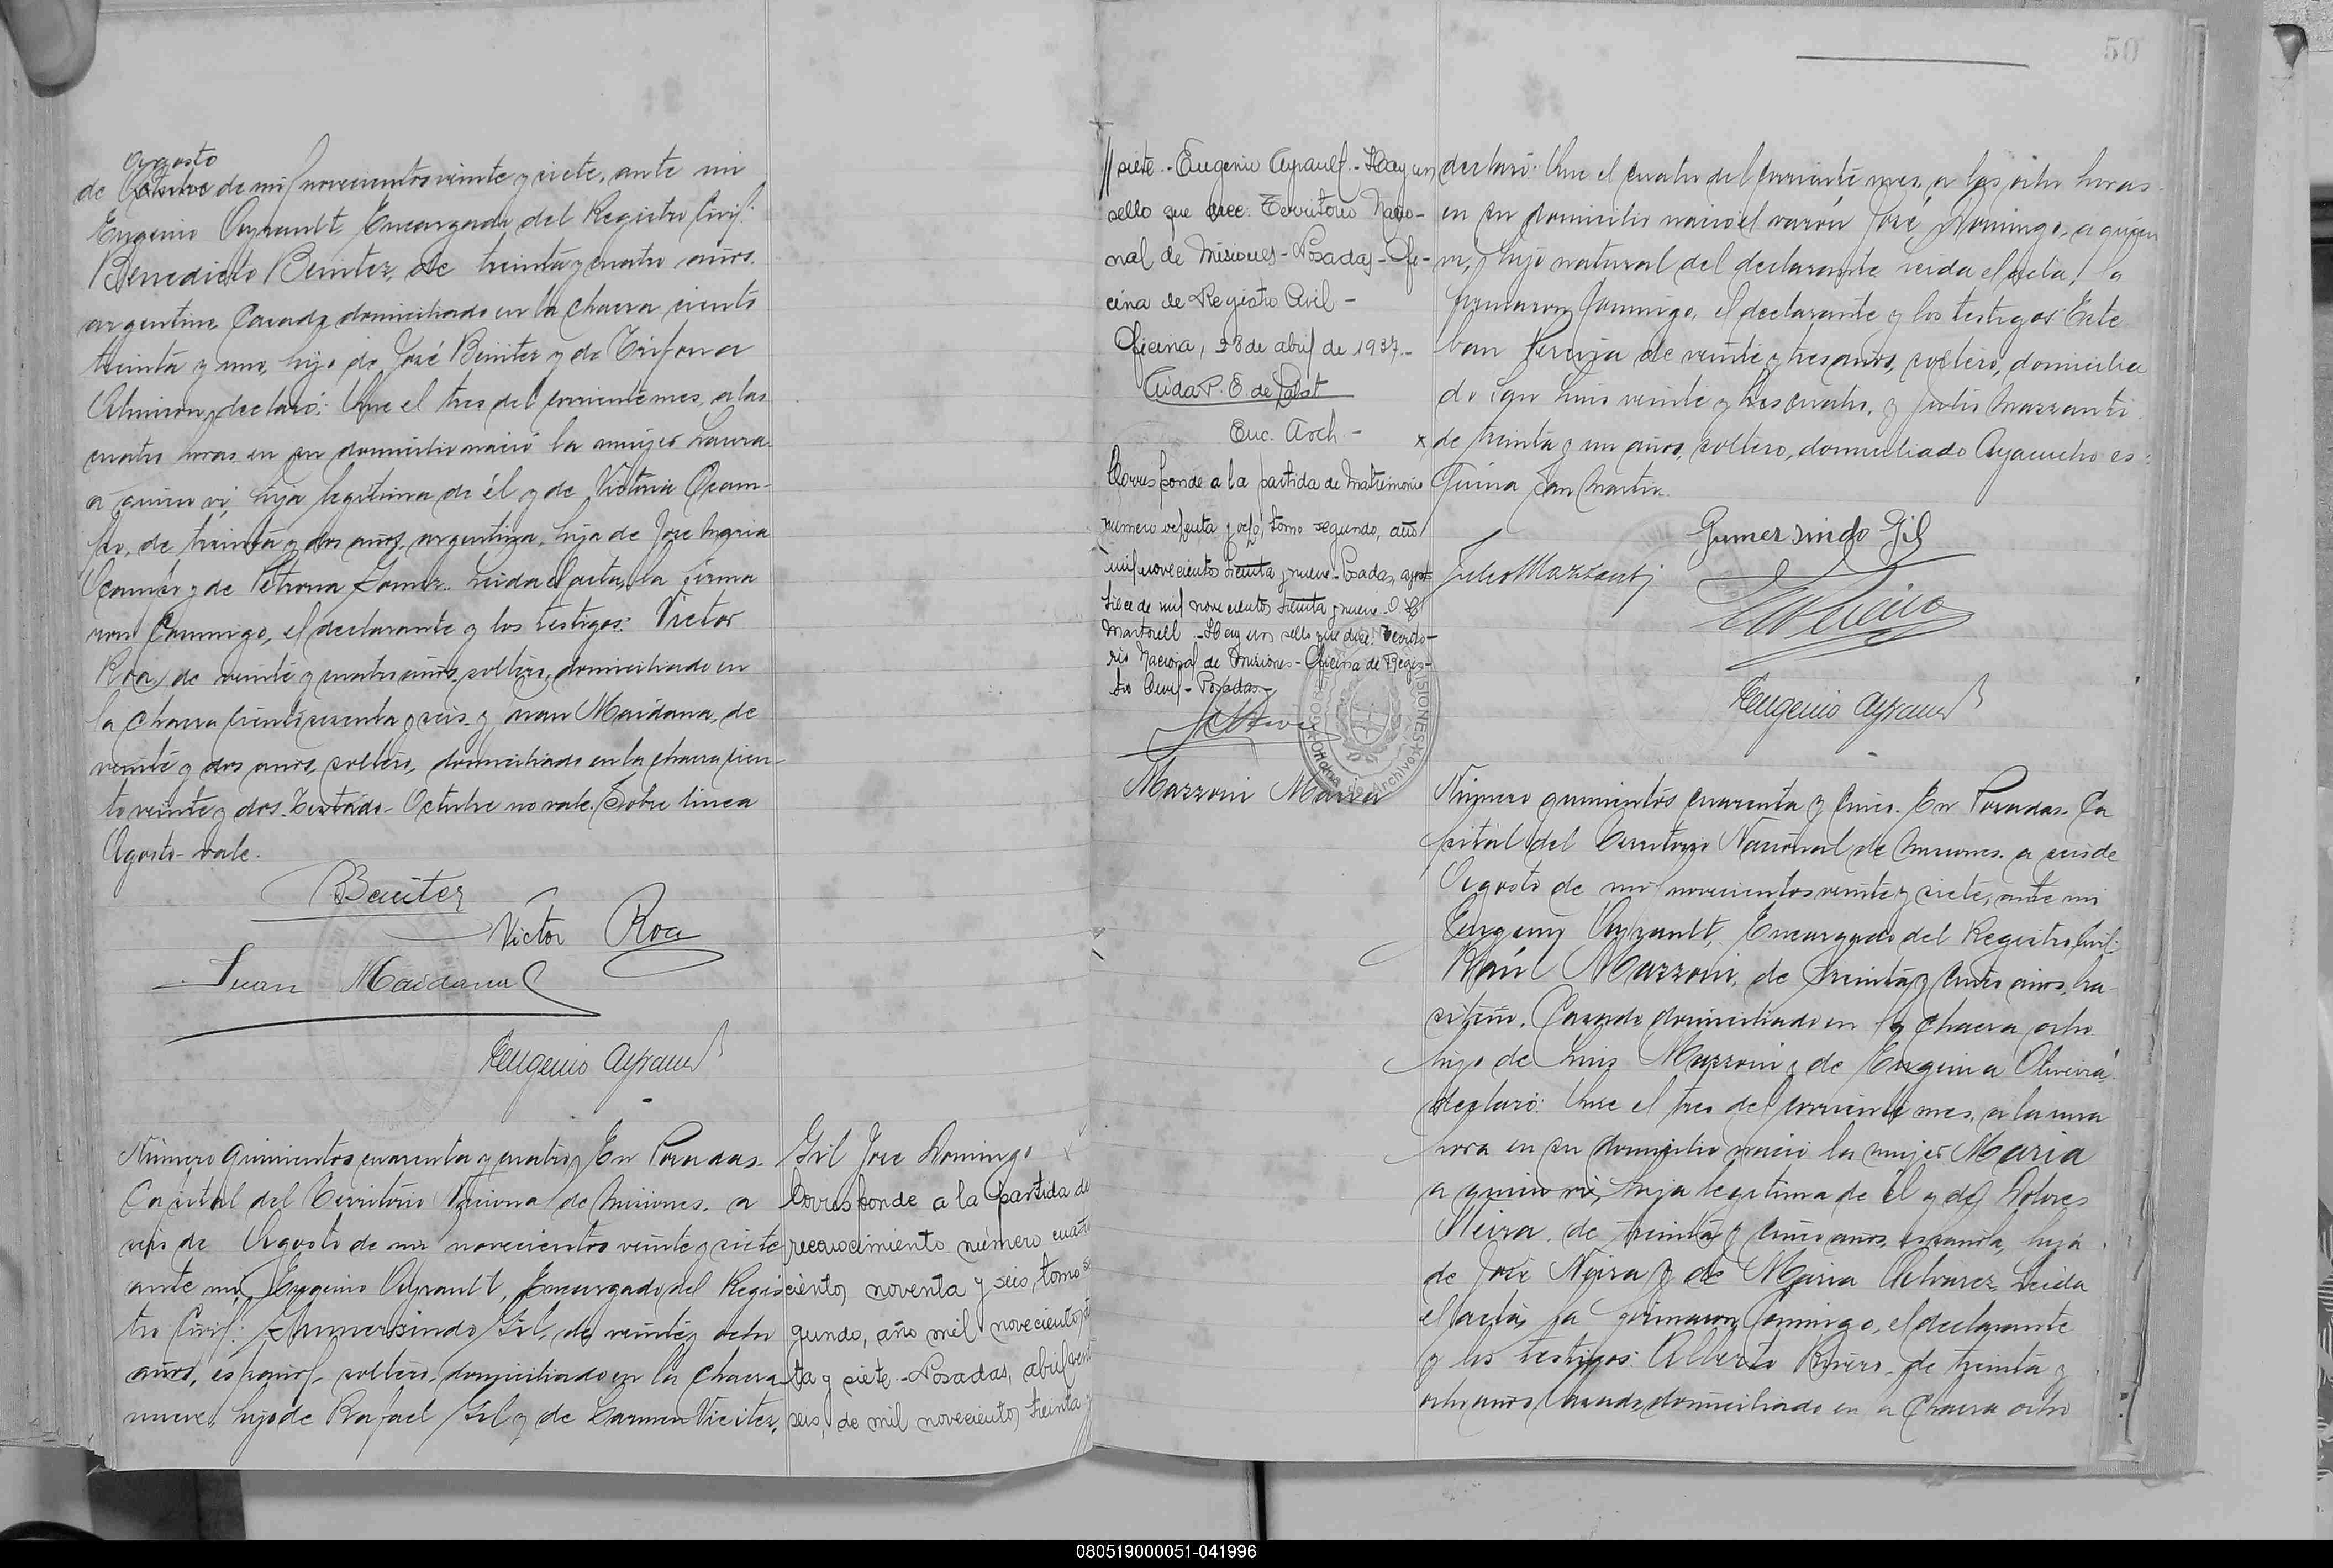 Agosto
de Octubre de mil novecientos veinte y siete, ante mi
Eugenio Ayrault Encargado del Registro Civil:
Benedicto Benitez, de treinta y cuatro años.
argentino Casado domiciliado en la chacra ciento
treinta y uno, hijo de José Benitez y de Trifona
Almiron, declaró: Que el tres del corriente mes, a las
cuatro horas en su domicilio nació la mujer Laura
a quien vi, hija legitima de él y de Victoria Ocam-
po, de treinta y dos años, argentina, hija de Jose Maria
Ocampo y de Petrona Gomez. Leida el acta, la firma
ron conmigo, el declarante y los testigos: Victor
Roa, de veinte y cuatro años, soltero, domiciliado en
la chacra ciento sesenta y seis y Juan Maidana, de
veinte y dos años, soltero, domiciliado en la chacra cien-
to veinte y dos. Testado- Octubre no vale. Sobre linea
Agosto- vale.
BBenitez
Victor Roa
Juan Maidana
Eugenio Ayrault
Número quinientos cuarenta y cuatro, En Posadas.
Capital del Territorio Nacional de Misiones. a
seis de Agosto de mil novecientos veinte y siete
ante mi, Eugenio Ayrault, Encargado del Regis
tro Civil: Gumersindo Gil, de veinte y ocho
años, español, soltero, domiciliado en la chacra
nueve, hijo de Rafael Gil y de Carmen Vieitez,
Gil Jose Domingo
Corresponde a la partida de
reconocimiento número cuatro
cientos noventa y seis, tomo se
gundo, año mil novecientos
ta y siete - Posadas, abril
seis, de mil novecientos treinta y
//siete.- Eugenio Ayrault.- Hay un
sello que dice: Territorio Nacio-
nal de Misiones - Posadas - Ofi-
cina de Registro Civil -
Oficina, 28 de abril de 1937.-
Enc. Arch.-
Corresponde a la partida de Matrimonio
numero ochenta y ocho, tomo segundo, año
mil novecientos treinta y nueve - Posadas, agosto
trece de mil novecientos treinta y nueve
Martorell - Hay un sello que dice: Territo-
rio Nacional de Misiones - Oficina de Regis-
tro Civil - Posadas -
MISIONES
Archivo
Mazzoni Maria
50
declaró: Que el cuatro del corriente mes, a las ocho horas
en su domicilio nació el varón José Domingo, a quien
vi, hijo natural del declarante leida el acta, la
firmaron conmigo, el declarante y los testigos Este
ban Pereira de veinte y tres años, soltero, domicilia
do San Luis veinte y tres cuatro, y Julio Mazzanti
x de treinta y un años, soltero, domiciliado Ayacucho es-
quina San Martin.
Gumersindo Gil
Julio Mazzanti
Eugenio Ayrault
Número quinientos cuarenta y cinco. En Posadas. Ca
pital del Territorio Nacional de Misiones. a seis de
Agosto de mil novecientos veinte y siete, ante mi
Eugenio Ayrault, Encargado del Registro Civil:
Raúl Mazzoni, de treinta y cinco años, bra
sileño, Casado domiciliado en la chacra ocho
hijo de Luis Mazzoni y de Eugenia Oliveira,
declaró: Que el tres del corriente mes, a la una
hora en su domicilio nació la mujer Maria
a quien vi, hija legitima de él y de Dolores
Neira, de treinta y cinco años, española, hija
de José Neira y de Maria Alvarez, Leida
el acta, la firmaron conmigo, el declarante
y los testigos: Alberto Rivero, de treinta y
ocho años, casado domiciliado en la chacra ocho
080519000051-041996